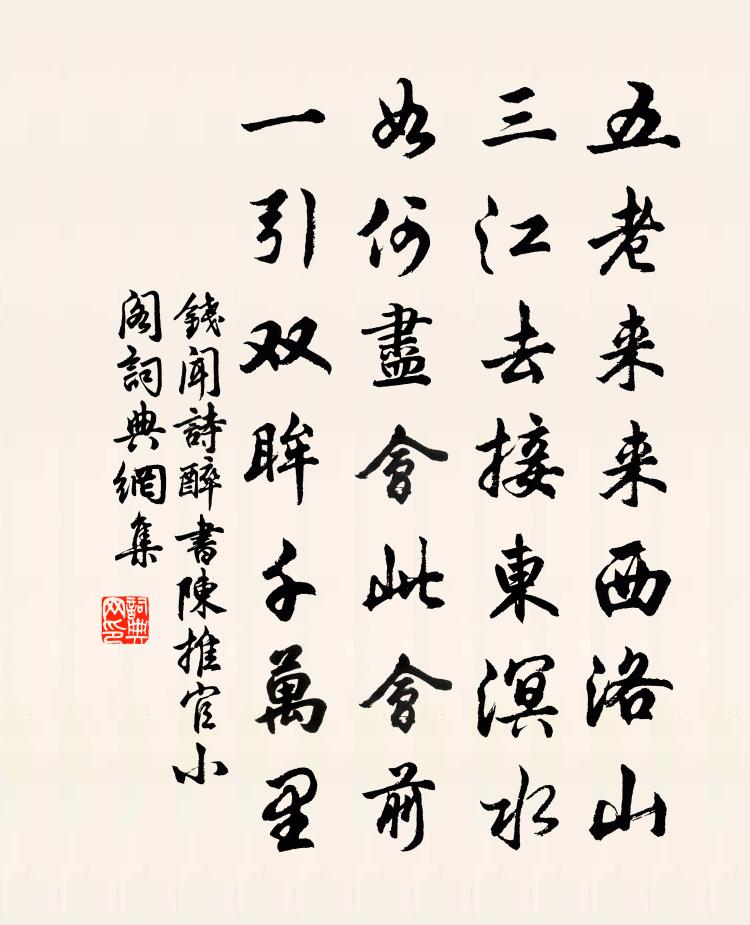 五老来来西洛山
三江去接東溟水
如何盡會此會前
一引双眸千萬里
錢聞詩醉書陳推官小
閣詞典網集
詞典
网印